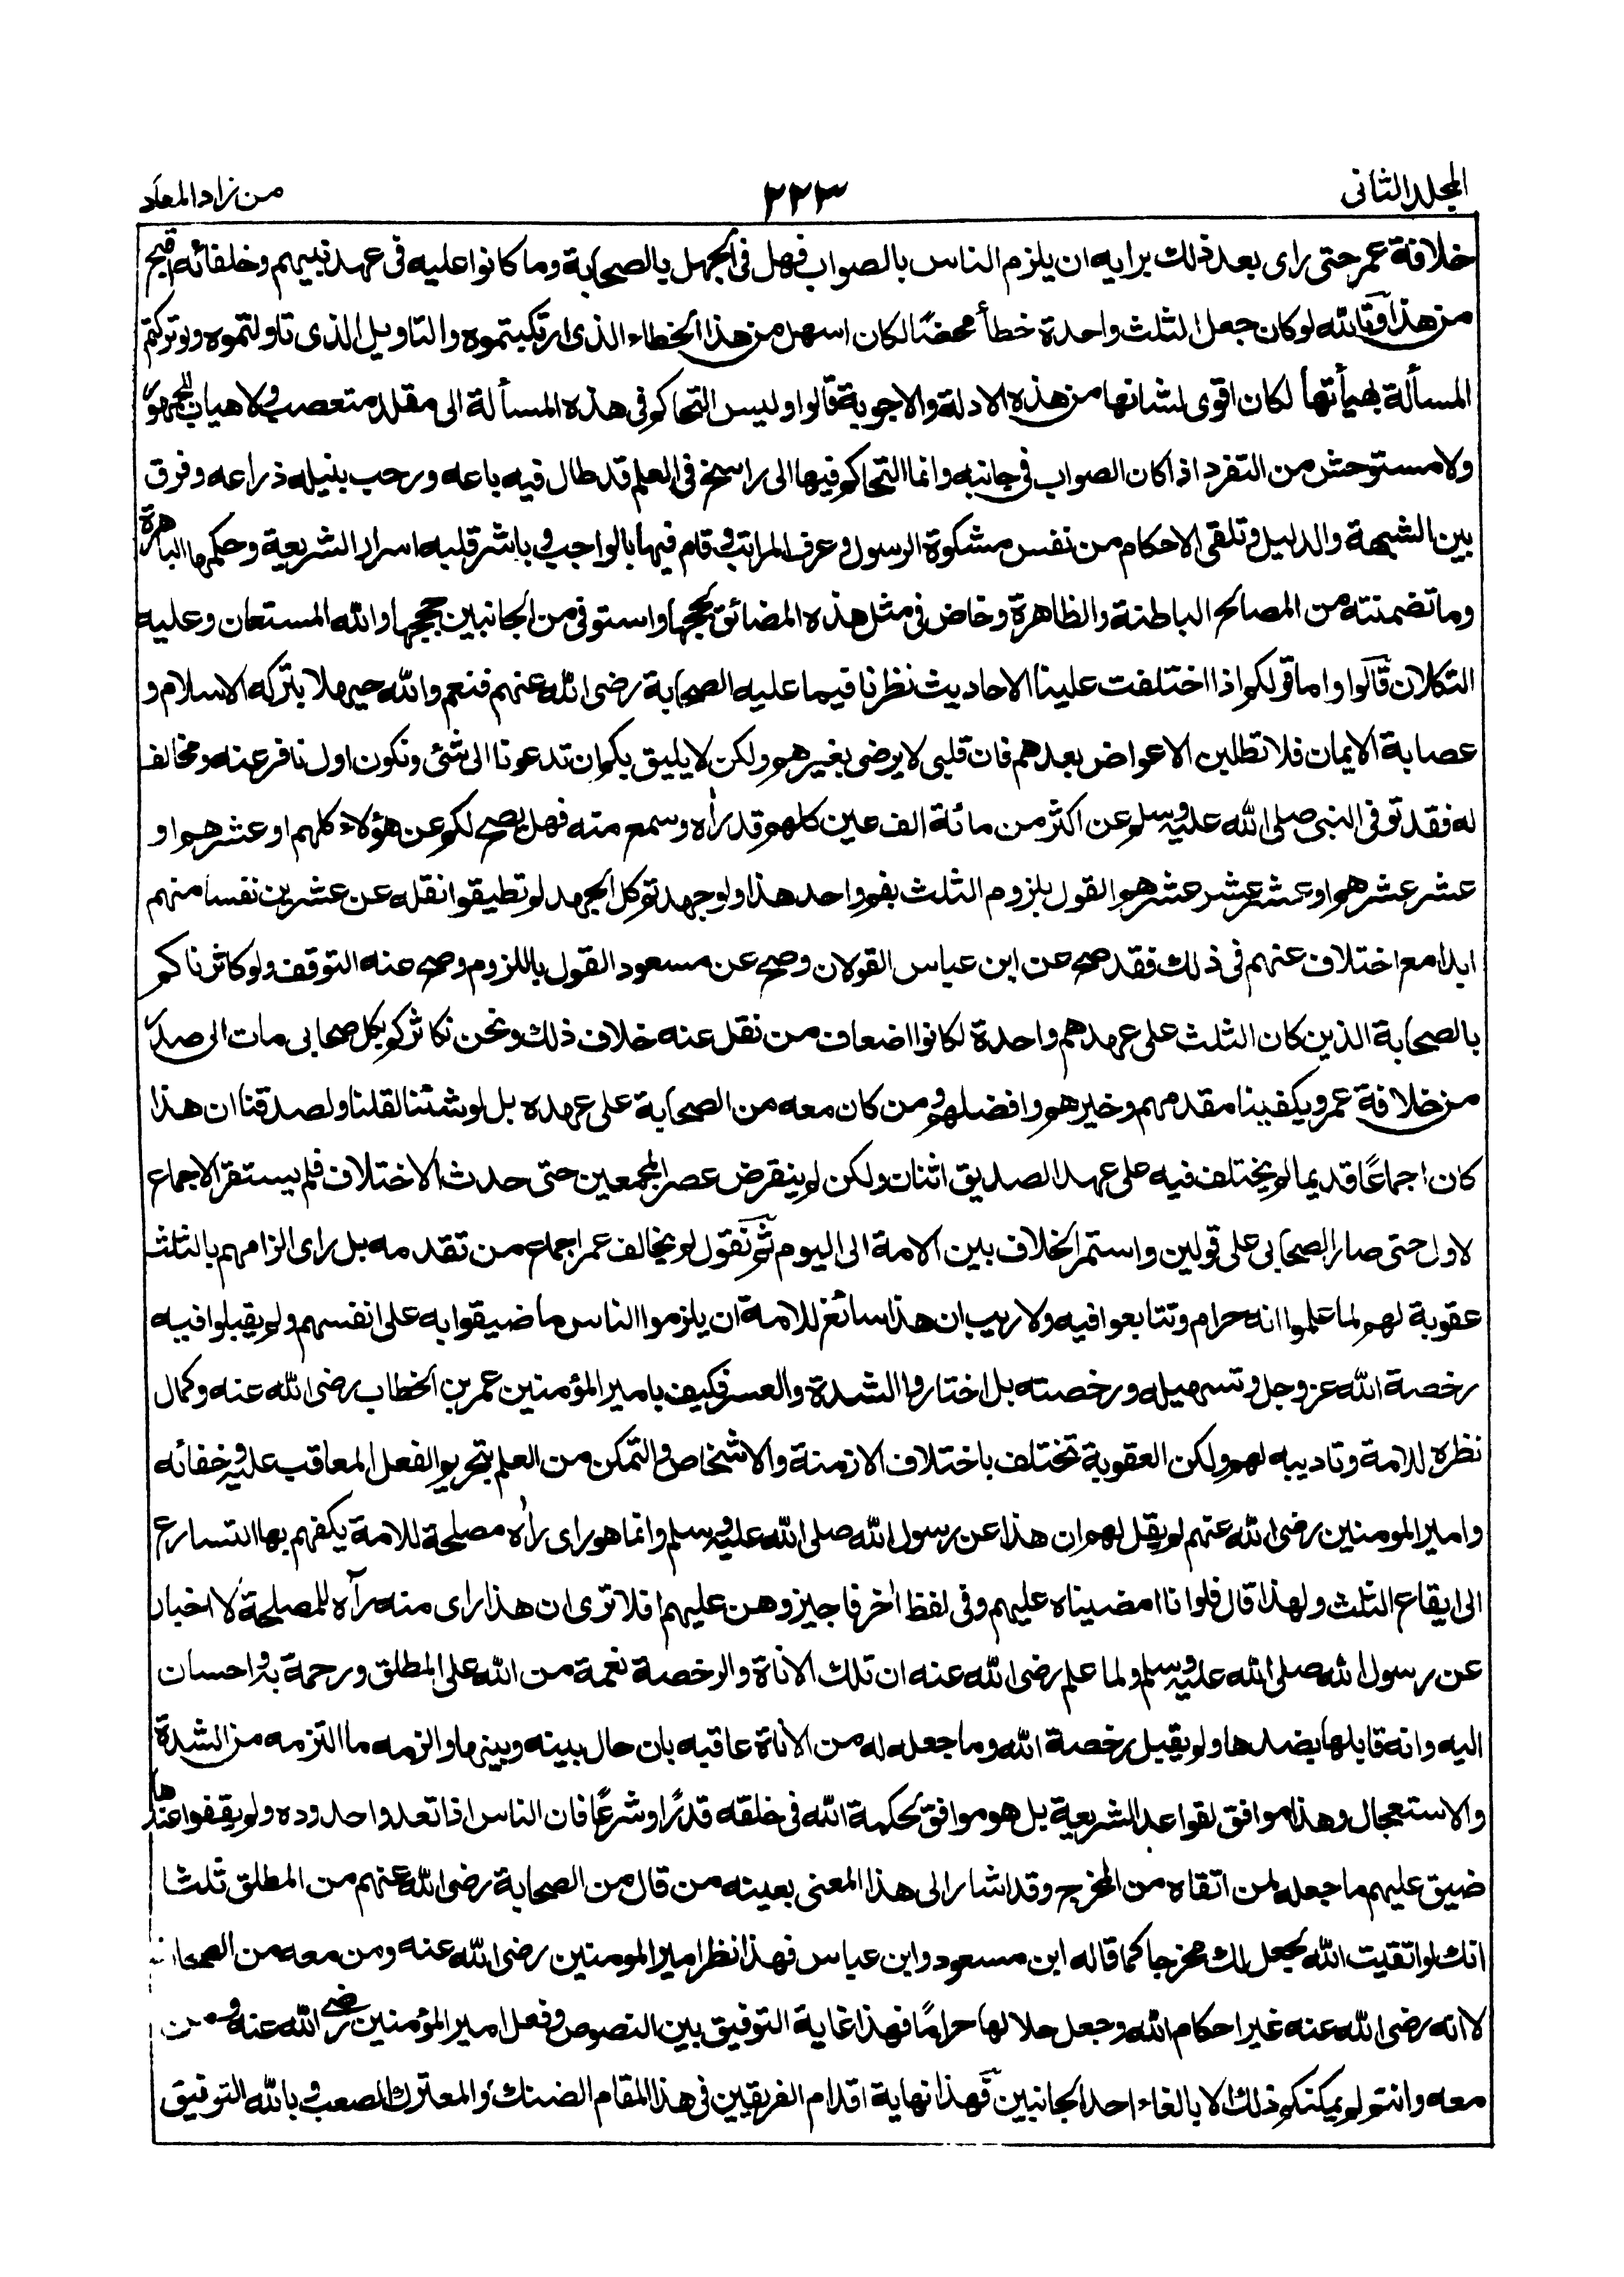 المجلد الثاني
٢٢٣
من زاد المعاد
خلافة عمر حتى راى بعد ذلك برايه ان يلزم الناس بالصواب فهل فى الجهل بالصحابة وما كانوا عليه فى عهد نبيهم وخلفائه اقبح
من هذا وتالله لو كان جعل الثلث واحدة خطأ محضًا لكان اسهل من هذا الخطاء الذى ارتكبتموه والتاويل الذى تاولتموه ولو تركتم
المسألة بهيأتها لكان اقوى لشانها من هذه الادلة والاجوبة قالوا وليس التحاكم فى هذه المسألة الى مقلد متعصب ولا هياب للجمهور
ولا مستوحش من التفرد اذا كان الصواب فى جانبه وانما التحاكم فيها الى راسخ فى العلم قد طال فيه باعه ورحب بنيله ذراعه وفرق
بين الشبهة والدليل وتلقى الاحكام من نفس مشكوة الرسول وعرف المراتب وقام فيها بالواجب وباشر قلبه اسرار الشريعة وحكمها الباهرة
وما تضمنته من المصالح الباطنة والظاهرة وخاض فى مثل هذه المضائق لججها واستوفى من الجانبين حججها والله المستعان وعليه
التكلان قالوا واما قولكم اذا اختلفت علينا الاحاديث نظرنا فيما عليه الصحابة رضى الله عنهم فنعم والله حيهلا بتركه الاسلام و
عصابة الايمان فلا تطلبن الاعواض بعدهم فان قلبى لا يرضى بغيرهم ولكن لا يليق بكم ان تدعونا الى شئ ونكون اول نافر عنه ومخالف
له فقد توفى النبى صلى الله عليه وسلم عن اكثر من مائة الف عين كلهم قد رأه وسمع منه فهل يصح لكم عن هؤلاء كلهم او عشرهم او
عشر عشرهم او عشر عشر عشرهم القول بلزوم الثلث بفم واحد هذا ولو جهدتم كل الجهد لم تطيقوا نقله عن عشرين نفسا منهم
ابدا مع اختلاف عنهم فى ذلك فقد صح عن ابن عباس القولان وصح عن مسعود القول باللزوم وصح عنه التوقف ولو كاثرناكم
بالصحابة الذين كان الثلث على عهدهم واحدة لكانوا اضعاف من نقل عنه خلاف ذلك ونحن نكاثركم بكل صحابى مات الى صدر
من خلافة عمر ويكفينا مقدمهم وخيرهم وافضلهم ومن كان معه من الصحابة على عهده بل لو شئنا لقلنا ولصدقنا ان هذا
كان اجماعًا قديما لم يختلف فيه على عهد الصديق اثنان ولكن لم ينقرض عصر المجمعين حتى حدث الاختلاف فلم يستقر الاجماع
لاول حتى صار الصحابى على قولين واستمر الخلاف بين الامة الى اليوم ثم نقول لم يخالف عمر اجماع من تقدمه بل راى الزامهم بالثلث
عقوبة لهم لما علموا انه حرام وتتابعوا فيه ولا ريب ان هذا سائغ للامة ان يلزموا الناس ما ضيقوا به على انفسهم ولم يقبلوا فيه
رخصة الله عز وجل وتسهيله ورخصته بل اختاروا الشدة والعسر فكيف بامير المؤمنين عمر بن الخطاب رضى الله عنه وكمال
نظره للامة وتاديبه لهم ولكن العقوبة تختلف باختلاف الازمنة والاشخاص والتمكن من العلم بتحريم الفعل المعاقب عليه وخفائه
وامير المومنين رضى الله عنهم لم يقل لهم ان هذا عن رسول الله صلى الله عليه وسلم وانما هو راى رأه مصلحة للامة يكفهم بها التسارع
الى ايقاع الثلث ولهذا قال فلوانا امضيناه عليهم وفى لفظ اخر فاجيزوهن عليهم افلا ترى ان هذا راى منه رآه للمصلحة لا اخبار
عن رسول الله صلى الله عليه وسلم ولما علم رضى الله عنه ان تلك الاناة والرخصة نعمة من الله على المطلق ورحمة به واحسان
اليه وانه قابلها بضدها ولم يقبل رخصة الله وما جعله له من الاناة عاقبه بان حال بينه وبينها والزمه ما التزمه من الشدة
والاستعجال وهذا موافق لقواعد الشريعة بل هو موافق لحكمة الله فى خلقه قدرًا وشرعًا فان الناس اذا تعدوا حدوده ولم يقفوا عندها
ضيق عليهم ما جعله لمن اتقاه من المخرج وقد اشار الى هذا المعنى بعينه من قال من الصحابة رضى الله عنهم من المطلق ثلثا
انك لو اتقيت الله يجعل لك مخرجا كما قاله ابن مسعود وابن عباس فهذا نظر امير المومنين رضى الله عنه ومن معه من الصحابة
لا انه رضى الله عنه غير احكام الله وجعل حلالها حرامًا فهذا غاية التوفيق بين النصوص وفعل امير المؤمنين رضى الله عنه ومن
معه وانتم لم يمكنكم ذلك الا بالغاء احد الجانبين فهذا نهاية اقدام الفريقين فى هذا المقام الضنك والمعترك الصعب وبالله التوفيق